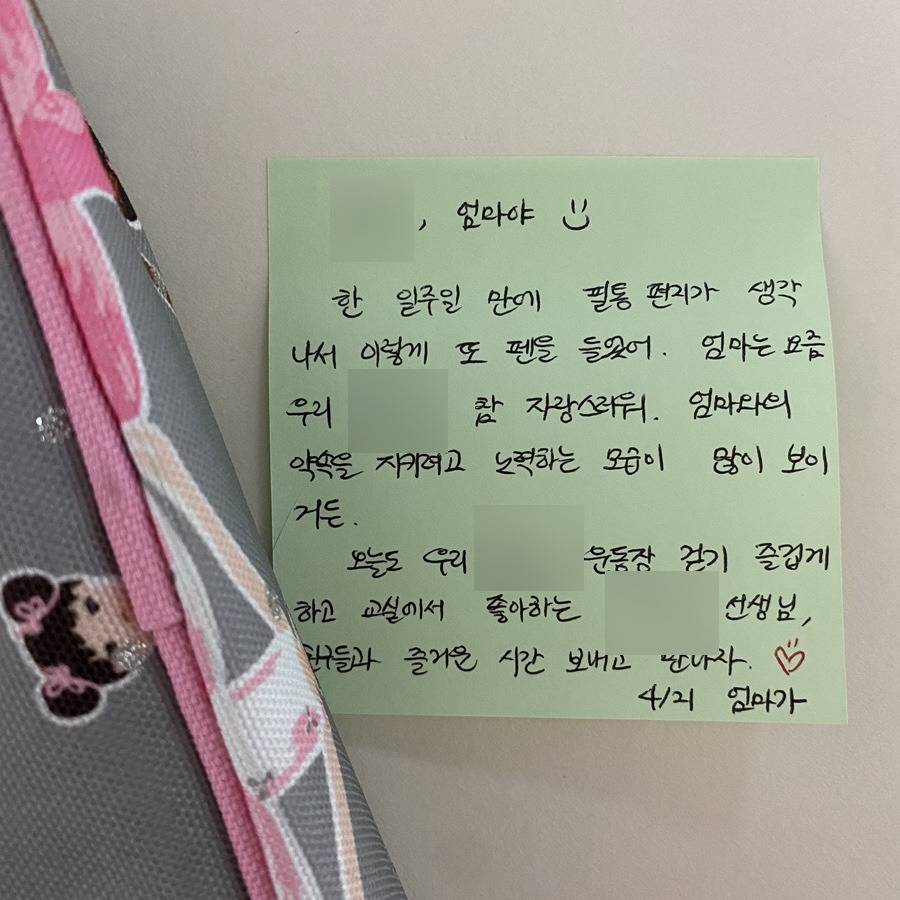 , 엄마야
한 일주일 만에 필통 편지가 생각
나서 이렇게 또 펜을 들었어. 엄마는 요즘
우리 참 자랑스러워. 엄마와의
약속을 지키려고 노력하는 모습이 많이 보이
거든.
오늘도 우리 운동장 걷기 즐겁게
하고 교실에서 좋아하는 선생님,
친구들과 즐거운 시간 보내고 만나자. ♡
4/21 엄마가